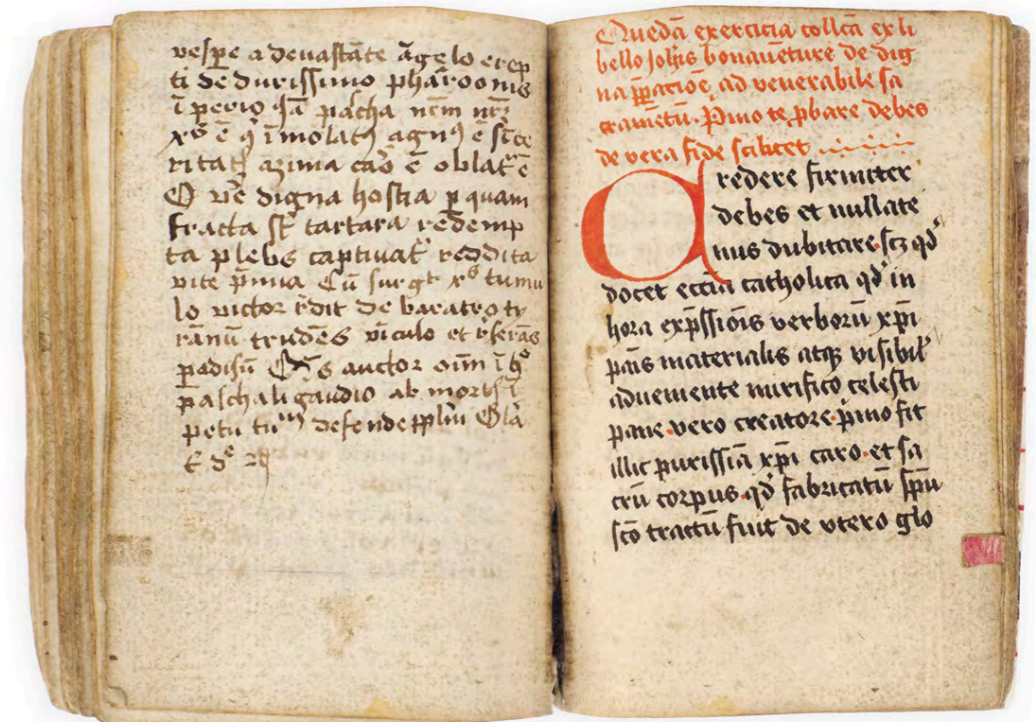 vespe a devastāte āgelo erep
ti de durissimo pharaonis
īperio Iā pascha nrm
xpс ē qͥ īmolatꝰ agnꝰ ē sīce
ritatꝭ azima caro ē oblat ē
O ve digna hostia p quam
fracta st tartara redemp
ta plebs captivat reddita
vite pmia Cū surgt xpс tumu
lo victor rdit de baratro ty
rānū trudēs viculo et rserās
padisū Qs auctor oīm ī hͦ
paschali gaudio ab morts ī
petu tuū defende pplm Gla
t dͦ
Quedā exercicia collcā ex li
bello Johīs bonauēture de dig
na ꝑꝑacioē ad venerabile sa
cramētū. Pimo te ꝓbare debes
de vera fide scilicet
Credere firmiter
debes et nullate
nus dubitare scz qd
docet eccīa catholica qd in
hora exp̄ssiōis verborū xp̄i
panis materialis atqꝫ visibil
adveniente mirifico celesti
pane vero creatore pimo fit
illic purissīa xp̄i caro et sa
crū corpus qd fabricatū sp̄u
scō tractū fuit de vtero glo